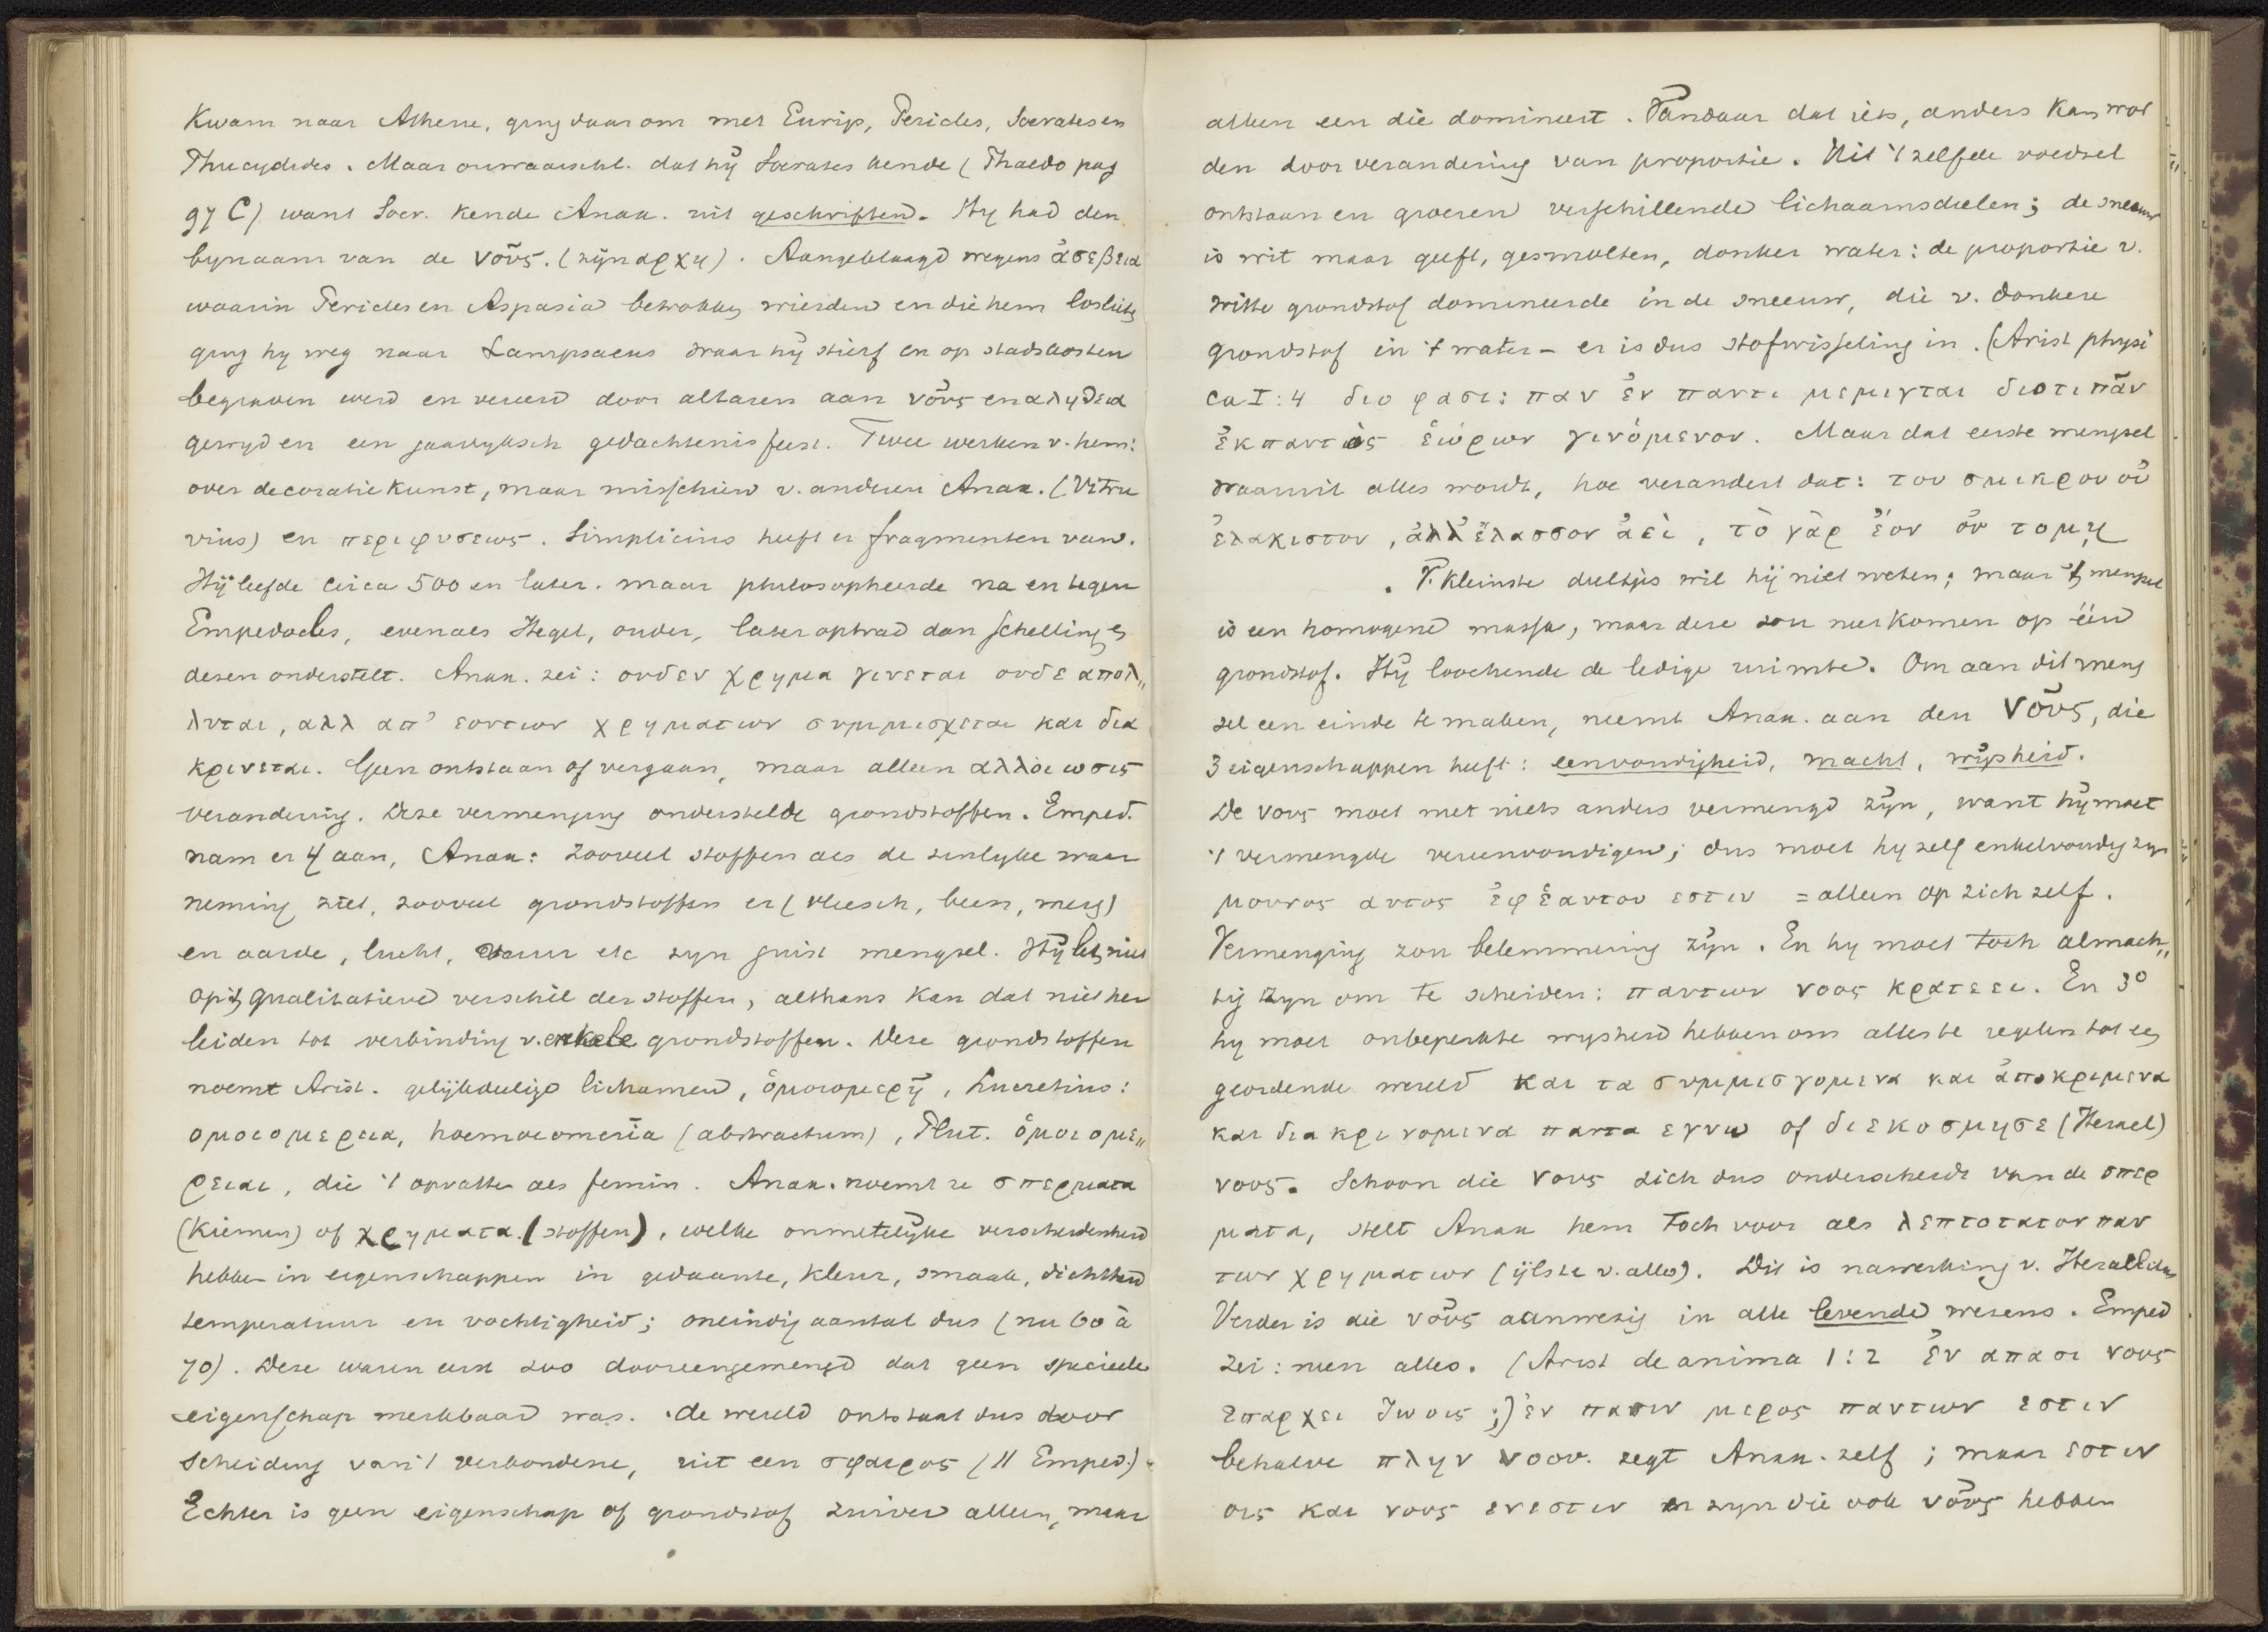 Kwam naar Athene, ging daar om met Eurip, Pericles, Socrates en
Thucydides. Maar onwaarschl. dat hij Socrates kende (Phaedo pag
97 C) want Socr. kende Anax. uit geschriften. Hy had den
bynaam van de νοῦς. (zijn αρχη). Aangeklaagd wegens ἀσεβεια
waarin Pericles en Aspasia betrokken wierden en die hem loslieten
ging hy weg naar Lampsacus waar hij stierf en op stadskosten
begraven werd en vereerd door altaren aan νοῦς en αληθεια
gewyd en een jaarlyksch gedachtenisfeest. Twee werken v. hem:
over decoratiekunst, maar misschien v. anderen Anax. (Vitru
vius) en περι φυσεως. Simplicius heeft er fragmenten van.
Hij leefde circa 500 en later. maar philosopheerde na en tegen
Empedocles, evenals Hegel, ouder, later optrad dan Schelling en
dezen onderstelt. Anax. zei: ουδεν χρημα γινεται ουδε απολ„
λυται, αλλ απ' εοντων χρηματων συμμισχεται και δια
κρινεται. Geen ontstaan of vergaan, maar alleen αλλοιωσις
verandering. Deze vermenging onderstelde grondstoffen. Emped.
nam er 4 aan, Anax: zooveel stoffen als de zinlyke waar
neming ziet, zooveel grondstoffen er (vleesch, been, merg)
en aarde, lucht, vuur etc zyn juist mengsel. Hij let niet
op 't qualitatieve verschil der stoffen, althans kan dat niet her
leiden tot verbinding v. enkele grondstoffen. Deze grondstoffen
noemt Arist. gelijkdeelige lichamen, ὁμοιομερῆ, Lucretius:
ομοιομερεια, homoeomeria (abstractum), Plut. ὁμοιομε„
ρειαι, die 't opvatte als femin. Anax. noemt ze σπερματα
(kiemen) of χρηματα (stoffen), welke onmetelijke verscheidenheid
hebben in eigenschappen in gedaante, kleur, smaak, dichtheid
temperatuur en vochtigheid; oneindig aantal dus (nu 60 à
70). Deze waren eerst zoo dooreengemengd dat geen specieele
eigenschap merkbaar was. de wereld ontstaat dus door
scheiding van 't verbondene, uit een σφαιρος (// Emped.)
Echter is geen eigenschap of grondstof zuiver alleen, maar
alleen een die domineert. Vandaar dat iets, anders kan wor
den door verandering van proportie. Uit 't zelfde voedsel
ontstaan en groeien verschillende lichaamsdeelen; de sneeuw
is wit maar geeft, gesmolten, donker water: de proportie v.
witte grondstof domineerde in de sneeuw, die v. donkere
grondstof in 't water – er is dus stofwisseling in. (Arist physi
ca I:4 διο φασι: παν ἐν παντι μεμιχται διοτι πᾶν
ἐκ παντὸς ἑώρων γινόμενον. Maar dat eerste mengsel
waaruit alles wordt, hoe verandert dat: του σμικρου οὐ
ἐλαχιστον, ἀλλ' ἔλασσον ἀεὶ, τὸ γὰρ ἐὸν οὐ τομῃ
. V. kleinste deeltjes wil hij niet weten; maar 't mengsel
is een homogene massa, maar deze zou neerkomen op één
grondstof. Hij loochende de ledige ruimte. Om aan dit meng
sel een einde te maken, neemt Anax. aan den νοῦς, die
3 eigenschappen heeft: eenvoudigheid, macht, wijsheid.
De νους moet met niets anders vermengd zijn, want hij moet
't vermengde vereenvoudigen; dus moet hy zelf enkelvoudig zyn
μουνος αυτος ἐφ ἑαυτου εστιν = alleen op zich zelf.
Vermenging zou belemmering zijn. En hy moet toch almach„
tig zyn om te scheiden: παντων νοος κρατεει. En 3°
hy moet onbeperkte wysheid hebben om alles te regelen tot een
geordende wereld και τα συμμισγομενα και ἀποκριμενα
και διακρινομενα παντα εγνω of διεκοσμησε (Heracl)
νοος. Schoon die νους zich dus onderscheidt van de σπερ
ματα, stelt Anax hem toch voor als λεπτοτατον παν
των χρηματων (ijlste v. alles). Dit is nawerking v. Heraclitus
Verder is die νοῦς aanwezig in alle levende wezens. Emped
zei: neen alles. (Arist de anima 1:2 ἐν απασι νους
επαρχει ζωοις;) ἐν παντι μερος παντων εστιν
behalve πλην νοου. zegt Anax. zelf; maar εστιν
οις και νους ενεστιν er zyn die ook νοῦς hebben